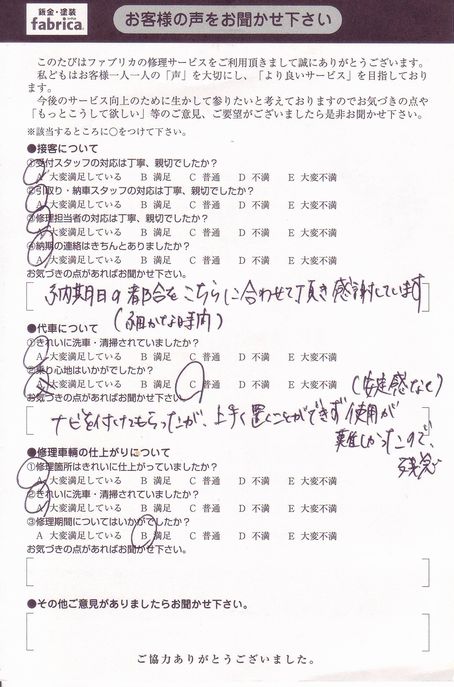 鈑金・塗装
fabrica.
お客様の声をお聞かせ下さい
このたびはファブリカの修理サービスをご利用頂きまして誠にありがとうございます。
私どもはお客様一人一人の「声」を大切にし、「より良いサービス」を目指しており
ます。
今後のサービス向上のために生かして参りたいと考えておりますのでお気づきの点や
「もっとこうして欲しい」等のご意見、ご要望がございましたら是非お聞かせ下さい。
※該当するところに○をつけて下さい。
●接客について
①受付スタッフの対応は丁寧、親切でしたか?
A 大変満足している B 満足 C 普通 D 不満 E 大変不満
②引取り・納車スタッフの対応は丁寧、親切でしたか?
A 大変満足している B 満足 C 普通 D 不満 E 大変不満
③修理担当者の対応は丁寧、親切でしたか?
A 大変満足している B 満足 C 普通 D 不満 E 大変不満
④納期の連絡はきちんとありましたか?
A 大変満足している B 満足 C 普通 D 不満 E 大変不満
お気づきの点があればお聞かせ下さい
納期日の都合をこちらに合わせて頂き感謝しています
(細かな時間)
●代車について
①きれいに洗車・清掃されていましたか?
A 大変満足している B 満足 C 普通 D 不満 E 大変不満
②乗り心地はいかがでしたか?
A 大変満足している B 満足 C 普通 D 不満 E 大変不満
お気づきの点があればお聞かせ下さい
(安定感など)
ナビを付けてもらったが、上手く置くことができず使用が
難しかったので、
残念
●修理車輌の仕上がりについて
①修理箇所はきれいに仕上がっていましたか?
A 大変満足している B 満足 C 普通 D 不満 E 大変不満
②きれいに洗車・清掃されていましたか?
A 大変満足している B 満足 C 普通 D 不満 E 大変不満
③修理期間についてはいかがでしたか?
A 大変満足している B 満足 C 普通 D 不満 E 大変不満
お気づきの点があればお聞かせ下さい
●その他ご意見がありましたらお聞かせ下さい。
ご協力ありがとうございました。